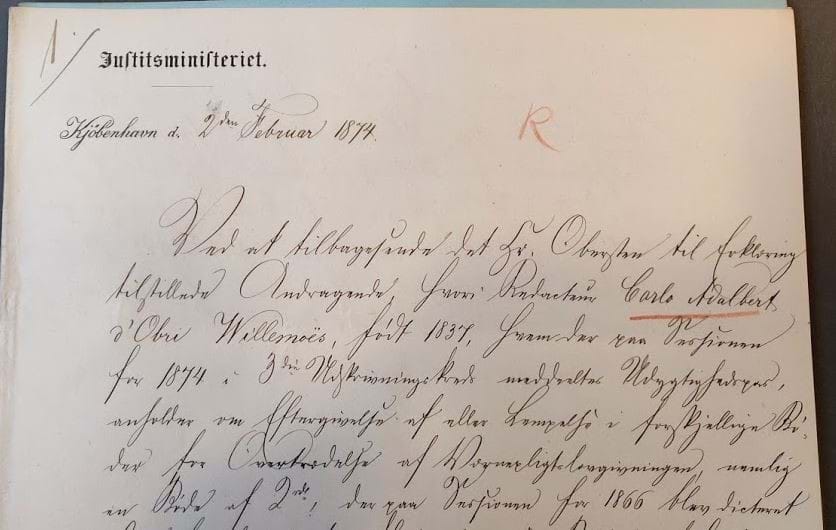 1.
Justitsministeriet.
Kjöbenhavn d. 2den Februar 1874.
R
Ved at tilbagesende det Hr. Obersten til Erklæring
tilstillede Andragende, hvori Redacteur Carlo Adalbert
d'Obri Willemoës, født 1837, hvem der paa Sessionen
for 1874 i 3die Udskrivningskreds meddeeltes Udygtighedspas,
anholder om Eftergivelse af eller Lempelse i forskjellige Bø-
der for Overtrædelse af Værnepligtslovgivningen, nemlig
en Bøde af 2rd, der paa Sessionen for 1866 blev dicteret